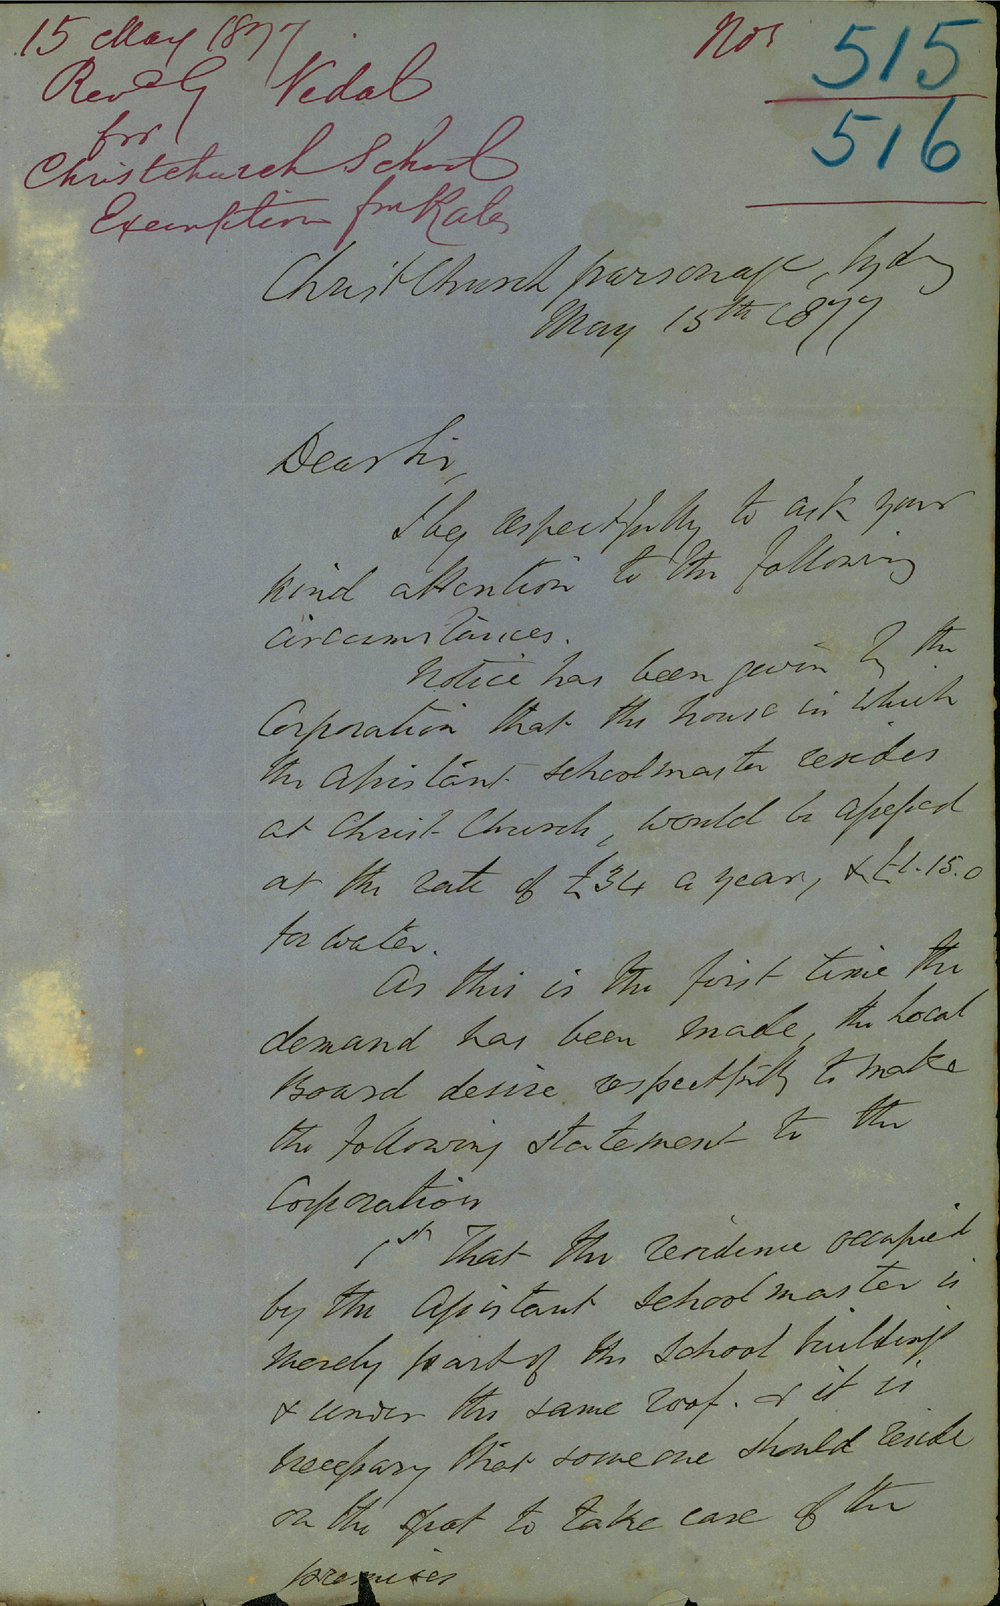 15 May 1877
Revd G Vidal
for
Christchurch School
Exemption fm Rates
Nos 515
516
Christ Church parsonage, Sydney
May 15th 1877
Dear Sir,
I beg respectfully to ask your
kind attention to the following
circumstances.
Notice has been given by the
Corporation that the house in which
the Assistant schoolmaster resides
at Christ Church, would be assessed
at the rate of £34 a year, & £1.15.0
for water.
As this is the first time the
demand has been made, the Local
Board desire respectfully to make
the following statement to the
Corporation
1st That the residence occupied
by the Assistant Schoolmaster is
merely part of the School buildings
& under the same roof. & it is
necessary that some one should reside
on the spot to take care of the
premises